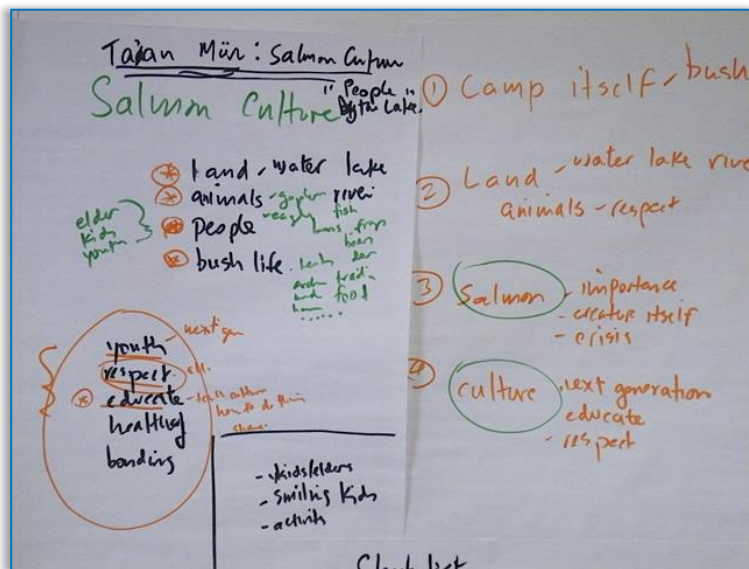 Tañan Mün: Salmon Culture
Salmon Culture
"People
by the Lake"
Land - water lake
animals - gopher river
eagles fish
people
frogs
bear
bush life - tents
food
......
elder
kids
youth
youth - next gen
respect - all.
educate - how to do
share
healthy
bonding
- kids/elders
- smiling kids
- activity
① Camp itself - bush
② Land - water lake river
animals - respect
③ Salmon - importance
- creature itself
- crisis
④ culture - next generation
educate
- respect